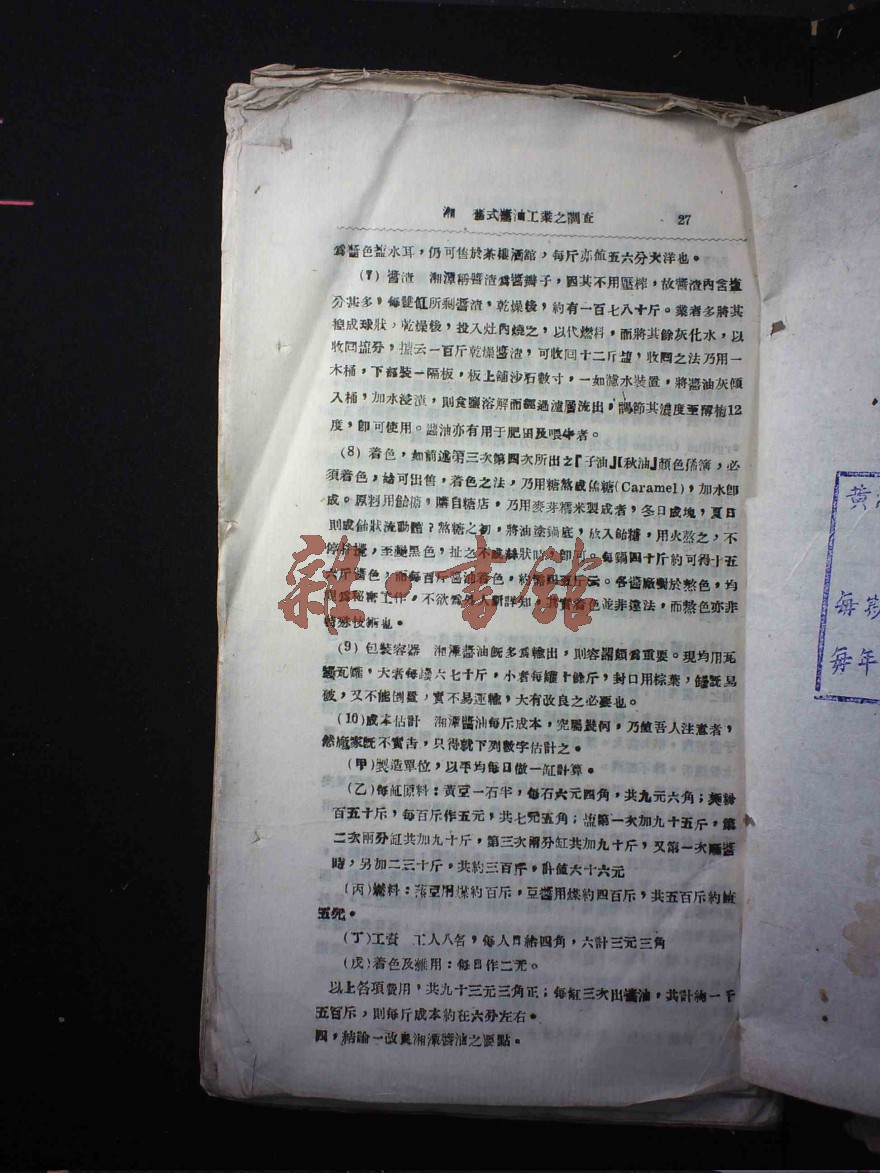 湘 舊式醬油工業之調查 27
爲醬色鹽水耳，仍可售於茶樓酒館，每斤亦值五六分大洋也。
(7) 醬渣 湘潭稱醬渣爲醬瓣子，因其不用壓榨，故醬渣內含鹽
分甚多，每雙缸所剩醬渣，乾燥後，約有一百七八十斤。業者多將其
揑成球狀，乾燥後，投入灶內燒之，以代燃料，而將其餘灰化水，以
收回鹽分，據云一百斤乾燥醬渣，可收回十二斤鹽，收回之法乃用一
木桶，下部裝一隔板，板上舖沙石數寸，一如濾水裝置，將醬油灰傾
入桶，加水浸漬，則食鹽溶解而經過濾層流出，調節其濃度至薄梅12
度，卽可使用。醬油亦有用于肥田及喂牛者。
(8) 着色，如前述第三次第四次所出之『子油』『秋油』顏色殊薄，必
須着色，始可出售，着色之法，乃用糖熬成焦糖(Caramel)，加水卽
成。原料用飴糖，購自糖店，乃用麥芽糯米製成者，冬日成塊，夏日
則成飴狀流動體？熬糖之初，將油塗鍋底，放入飴糖，用火熬之，不
停 攪，至變黑色，扯之不成絲狀時卽可。每鍋四十斤約可得十五
六斤醬色，而每百斤醬油着色，約需四五斤云。各醬廠對於熬色，均
爲秘密工作，不欲爲外人所詳知，其實着色並非違法，而熬色亦非
特殊技術也。
(9) 包裝容器 湘潭醬油旣多爲輸出，則容器頗爲重要。現均用瓦
罎瓦罐，大者每罎六七十斤，小者每罐十餘斤，封口用棕葉，罎旣易
破，又不能倒置，實不易運輸，大有改良之必要也。
(10)成本估計 湘潭醬油每斤成本，究屬幾何，乃值吾人注意者，
然廠家旣不實吿，只得就下列數字估計之。
(甲)製造單位，以平均每日做一缸計算。
(乙)每缸原料：黃豆一石半，每石六元四角，共九元六角；麵粉
百五十斤，每百斤作五元，共七元五角；鹽第一次加九十五斤，第
二次兩分缸共加九十斤，第三次兩分缸共加九十斤，又第一次曬醬
時，另加二三十斤，共約三百斤，計値六十六元
(丙)燃料：蒸豆用煤約百斤，豆醬用煤約四百斤，共五百斤約値
五元。
(丁)工資 工人八名，每人日給四角，六計三元三角
(戊)着色及雜用：每日作二元。
以上各項費用，共九十三元三角正；每缸三次出醬油，共計約一千
五百斤，則每斤成本約在六分左右。
四，結論一改良湘潭醬油之要點。
雜·書館
黃
每
每年